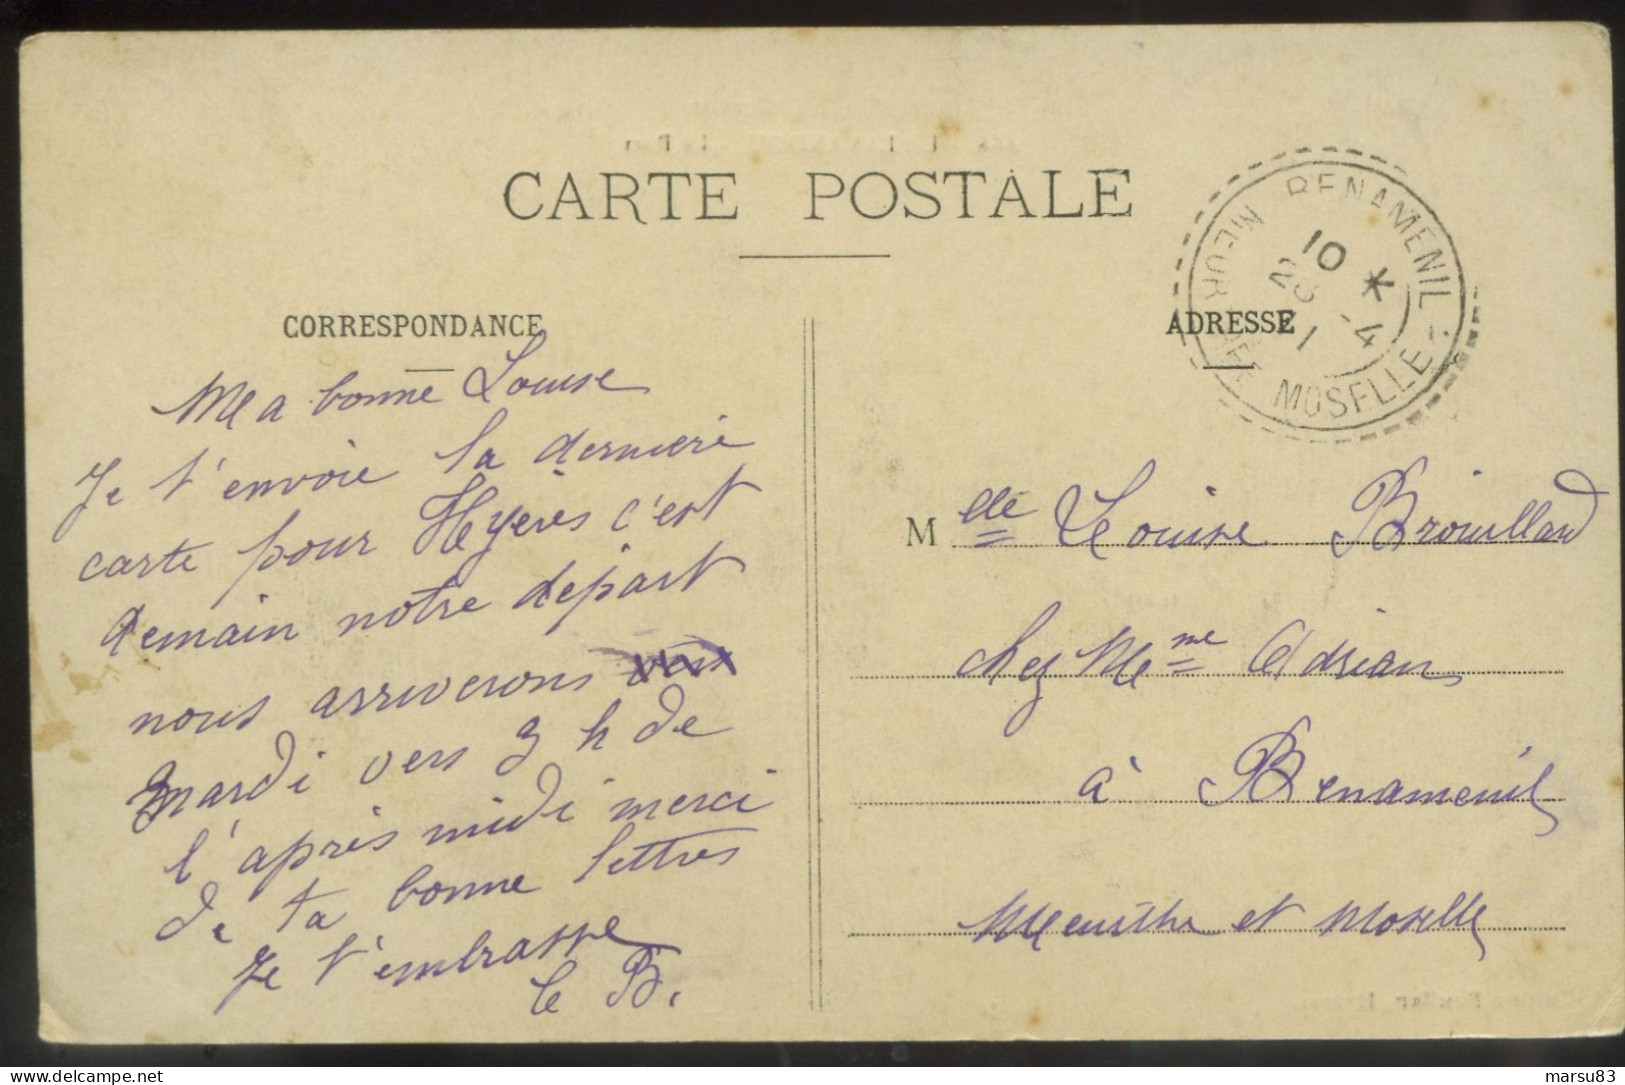 CARTE POSTALE
CORRESPONDANCE
Ma bonne Louise
Je t'envoie la derniere
carte pour Hyères c'est
demain notre départ
nous arriverons
mardi vers 3 h de
l'après midi merci
de ta bonne lettres
Je t'embrasse
le B.
ADRESSE
BENAMENIL
MEURTHE
MOSELLE
10 *
-4
M elle Louise Brouillard
chez Mme Adrian
à Benamenil
Meurthe et Moselle
marsu83